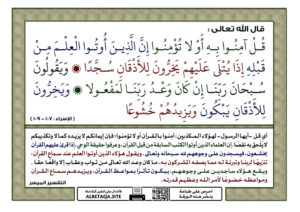 قال الله تعالى :
قُلْ آمِنُوا بِهِ أَوْ لَا تُؤْمِنُوا إِنَّ الَّذِينَ أُوتُوا الْعِلْمَ مِنْ
قَبْلِهِ إِذَا يُتْلَى عَلَيْهِمْ يَخِرُّونَ لِلْأَذْقَانِ سُجَّدًا وَيَقُولُونَ
سُبْحَانَ رَبِّنَا إِنْ كَانَ وَعْدُ رَبِّنَا لَمَفْعُولًا وَيَخِرُّونَ
لِلْأَذْقَانِ يَبْكُونَ وَيَزِيدُهُمْ خُشُوعًا
(الإسراء : ١٠٧ - ١٠٩)
أي قل -أيها الرسول- لهؤلاء المكذبين: آمنوا بالقرآن أو لا تؤمنوا؛ فإن إيمانكم لا يزيده كمالا وتكذيبكم
لا يلحق به نقصا. إن العلماء الذين أوتوا الكتب السابقة من قبل القرآن، وعرفوا حقيقة الوحي، إذا قرئ عليهم القرآن
يخشعون، فيسجدون على وجوههم لله سبحانه وتعالى. ويقول هؤلاء الذين أوتوا العلم عند سماع القرآن:
تنزيها لربنا وتبرئة له مما يصفه المشركون به، ما كان وعد الله تعالى من ثواب وعقاب إلا واقعا حقا.
ويقع هؤلاء ساجدين على وجوههم، يبكون تأثرا بمواعظ القرآن، ويزيدهم سماع القرآن
ومواعظه خضوعا لأمر الله وعظيم قدرته.
التفسير الميسر
ALBETAQA.SITE